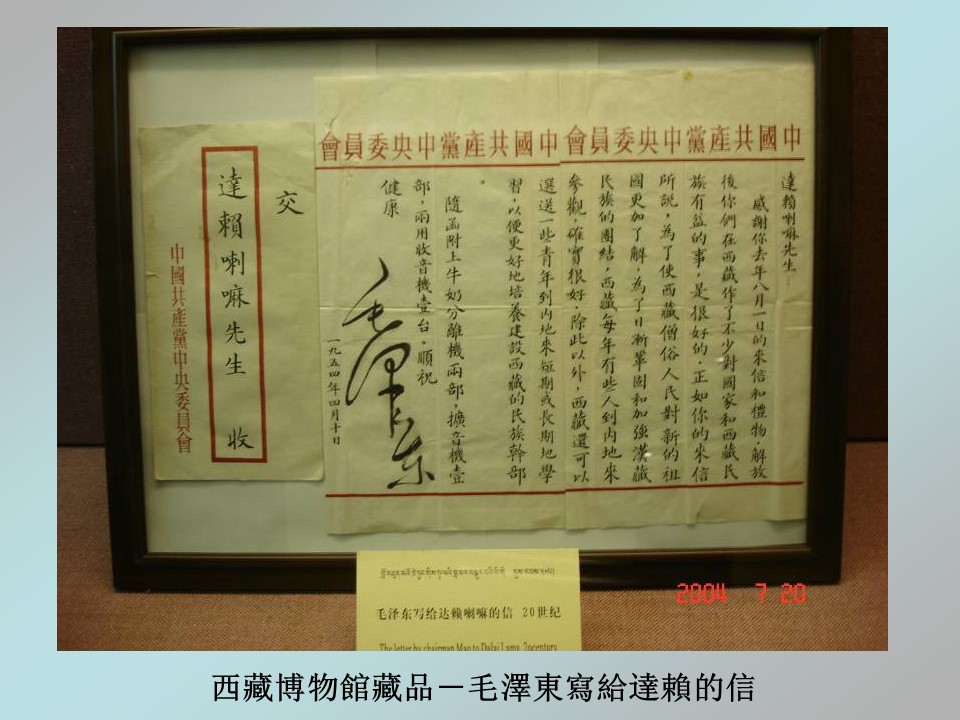 中國共產黨中央委員會
中國共產黨中央委員會
達賴喇嘛先生：
感謝你去年八月一日的來信和禮物，解放
後你們在西藏作了不少對國家和西藏民
族有益的事，是很好的。正如你的來信
所說，為了使西藏僧俗人民對新的祖
國更加了解，為了日漸鞏固和加強漢藏
民族的團結，西藏每年有些人到內地來
參觀，確實很好，除此以外，西藏還可以
選送一些青年到內地來短期或長期地學
習，以便更好地培養建設西藏的民族幹部
隨函附上牛奶分離機兩部，擴音機壹
部，兩用收音機壹台。順祝
健康
毛澤東
一九五四年四月十日
交
達賴喇嘛先生 收
中國共產黨中央委員會
毛泽东写给达赖喇嘛的信 20世纪
The letter by chairman Mao to Dalai Lama 20century
2004 7 20
西藏博物館藏品－毛澤東寫給達賴的信